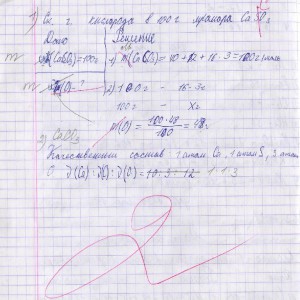 1) Ск. г. кислорода в 100 г. мрамора Ca
Дано Решение
m(CaCO₃)=100г 1) m(CaCO₃) = 40 + 12 + 16 · 3 = 100 г/моль
m(O) - ? 2) 100 г - 16 · 3 г
100 г - Xг
m(O) = 100 · 48 / 100 = 48 г.
2) CaCO₃
Качественный состав 1 атом Ca, 1 атом S, 3 атома
O. (Ca) : (C) : (O) = 10 : 3 : 12 1 : 1 : 3
2